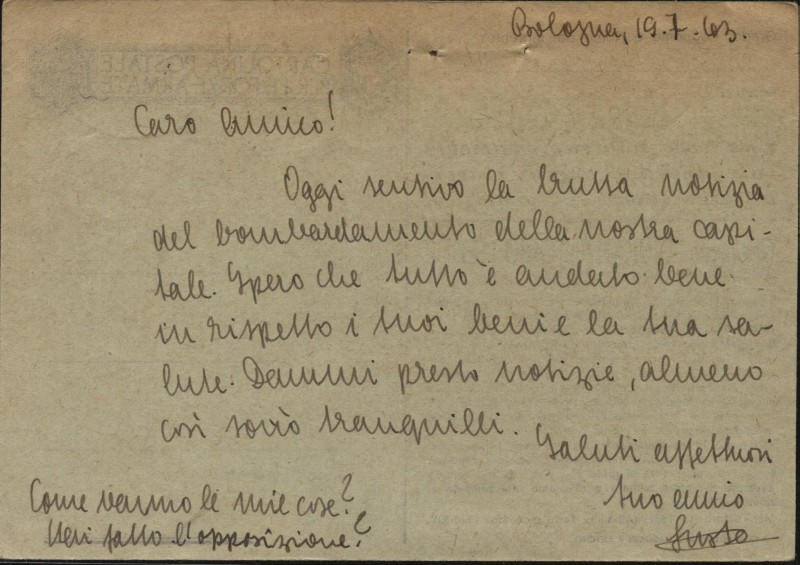 Bologna, 19.7.43.
CARTOLINA POSTALE
PER LE FORZE ARMATE
Caro Amico!
Oggi sentivo la brutta notizia
del bombardamento della nostra capi-
tale. Spero che tutto è andato bene
in rispetto i tuoi beni e la tua sa-
lute. Dammi presto notizie, almeno
così sarò tranquilli.
Saluti affettuosi
tuo amico
Come vanno le mie cose?
Hai fatto l'opposizione?